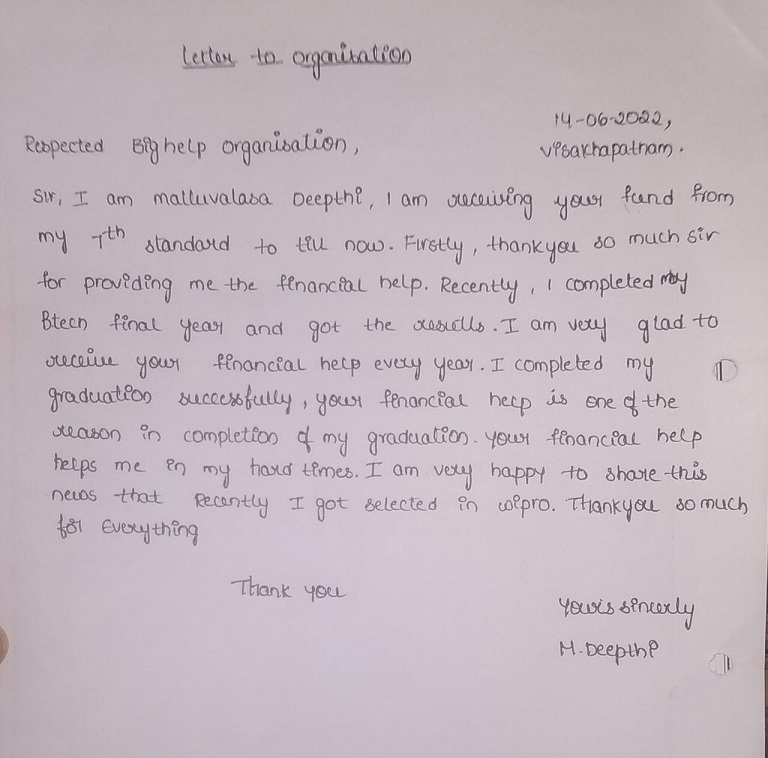 Letter to organisation
14-06-2022,
Respected Big help organisation,
visakhapatnam.
Sir, I am malluvalasa Deepthi, I am receiving your fund from
my 7th standard to till now. Firstly, thankyou so much sir
for providing me the financial help. Recently, I completed my
Btech final year and got the results. I am very glad to
receive your financial help every year. I completed my
graduation successfully, your financial help is one of the
reason in completion of my graduation. your financial help
helps me in my hard times. I am very happy to share this
news that Recently I got selected in wipro. Thankyou so much
for Everything
Thank you
Yours sincerly
M. Deepthi